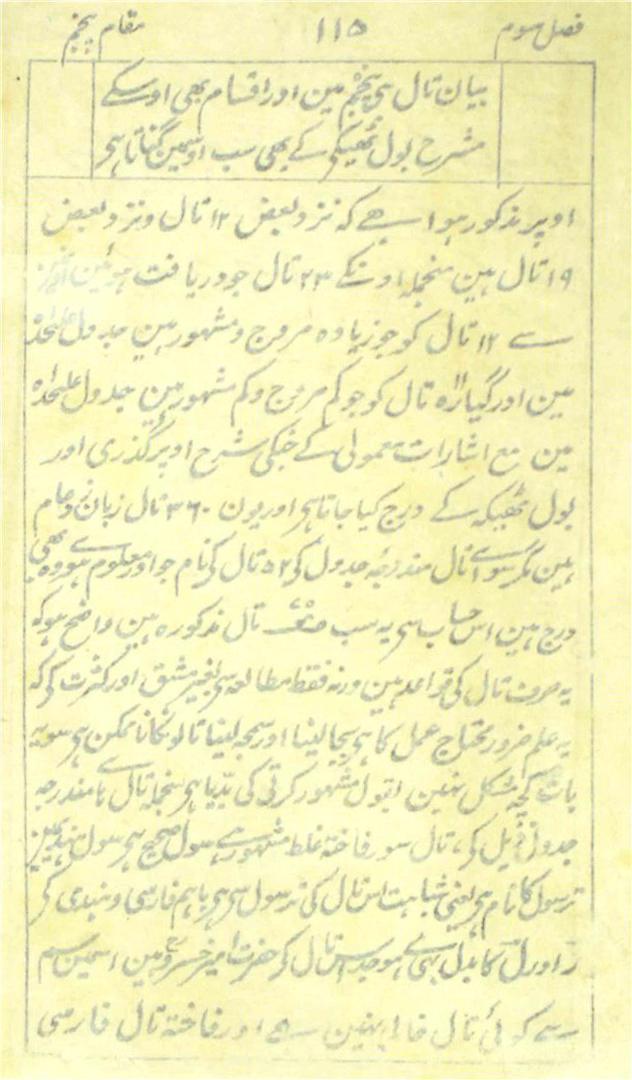 فصل سوم ۱۱۵ مقام پنجم
بیان تال ہی پنجم مین اور اقسام بھی اوسکے
مشرح بول ٹھیکہ کے بھی سب اوسمین گناتا ہر
اوپر مذکور ہوا ہے کہ نزد بعض ۱۲ تال و نزد بعض
۱۹ تال ہین منجملہ اونکے ۲۳ تال جو دریافت ہوئین
سے ۱۲ تال کو جو زیادہ مروج و مشہور ہین جدول علیحدہ
مین اور گیارہ تال کو جو کم مروج و کم مشہور ہین جدول علیحدہ
مین مع اشارات معمولی کے جنکی شرح اوپر گذری اور
بول ٹھیکہ کے درج کیا جاتا ہر اور یون ۳۶۰ تال زبان زد عام
ہین مگر سواے تال مندرجہ جدول کی ۵۲ تال کی نام جو اور معلوم ہو وہ بھی
درج ہین اس حساب سر یہ سب تال مذکورہ ہین واضح ہو کہ
یہ صرف تال کی قواعد ہین ورنہ فقط مطالعہ سر بغیر مشق اور کثرت کی کہ
یہ علم ضرور محتاج عمل کا ہر بجا لینا اور سمجہ لینا تالونکا ناممکن ہر سو یہ
بات کچہ مشکل نہین بقول مشہور کرتی کی بدیا ہر منجملہ تال ہا مندرجہ
جدول ذیل کی، تال سور فاختہ غلط مشہور ہے سول صحیح ہر سول ہندی مین
ترسول کا نام ہر یعنی شباہت اس تال کی ترسول سر ہر باہم فارسی و ہندی کی
ر اور ل کا بدل بھی ہر موجد اس تال کی حضرت امیر خسرو ہین اسمین سم
سے کوئی تال خالی نہین ہے اور فاختہ تال فارسی